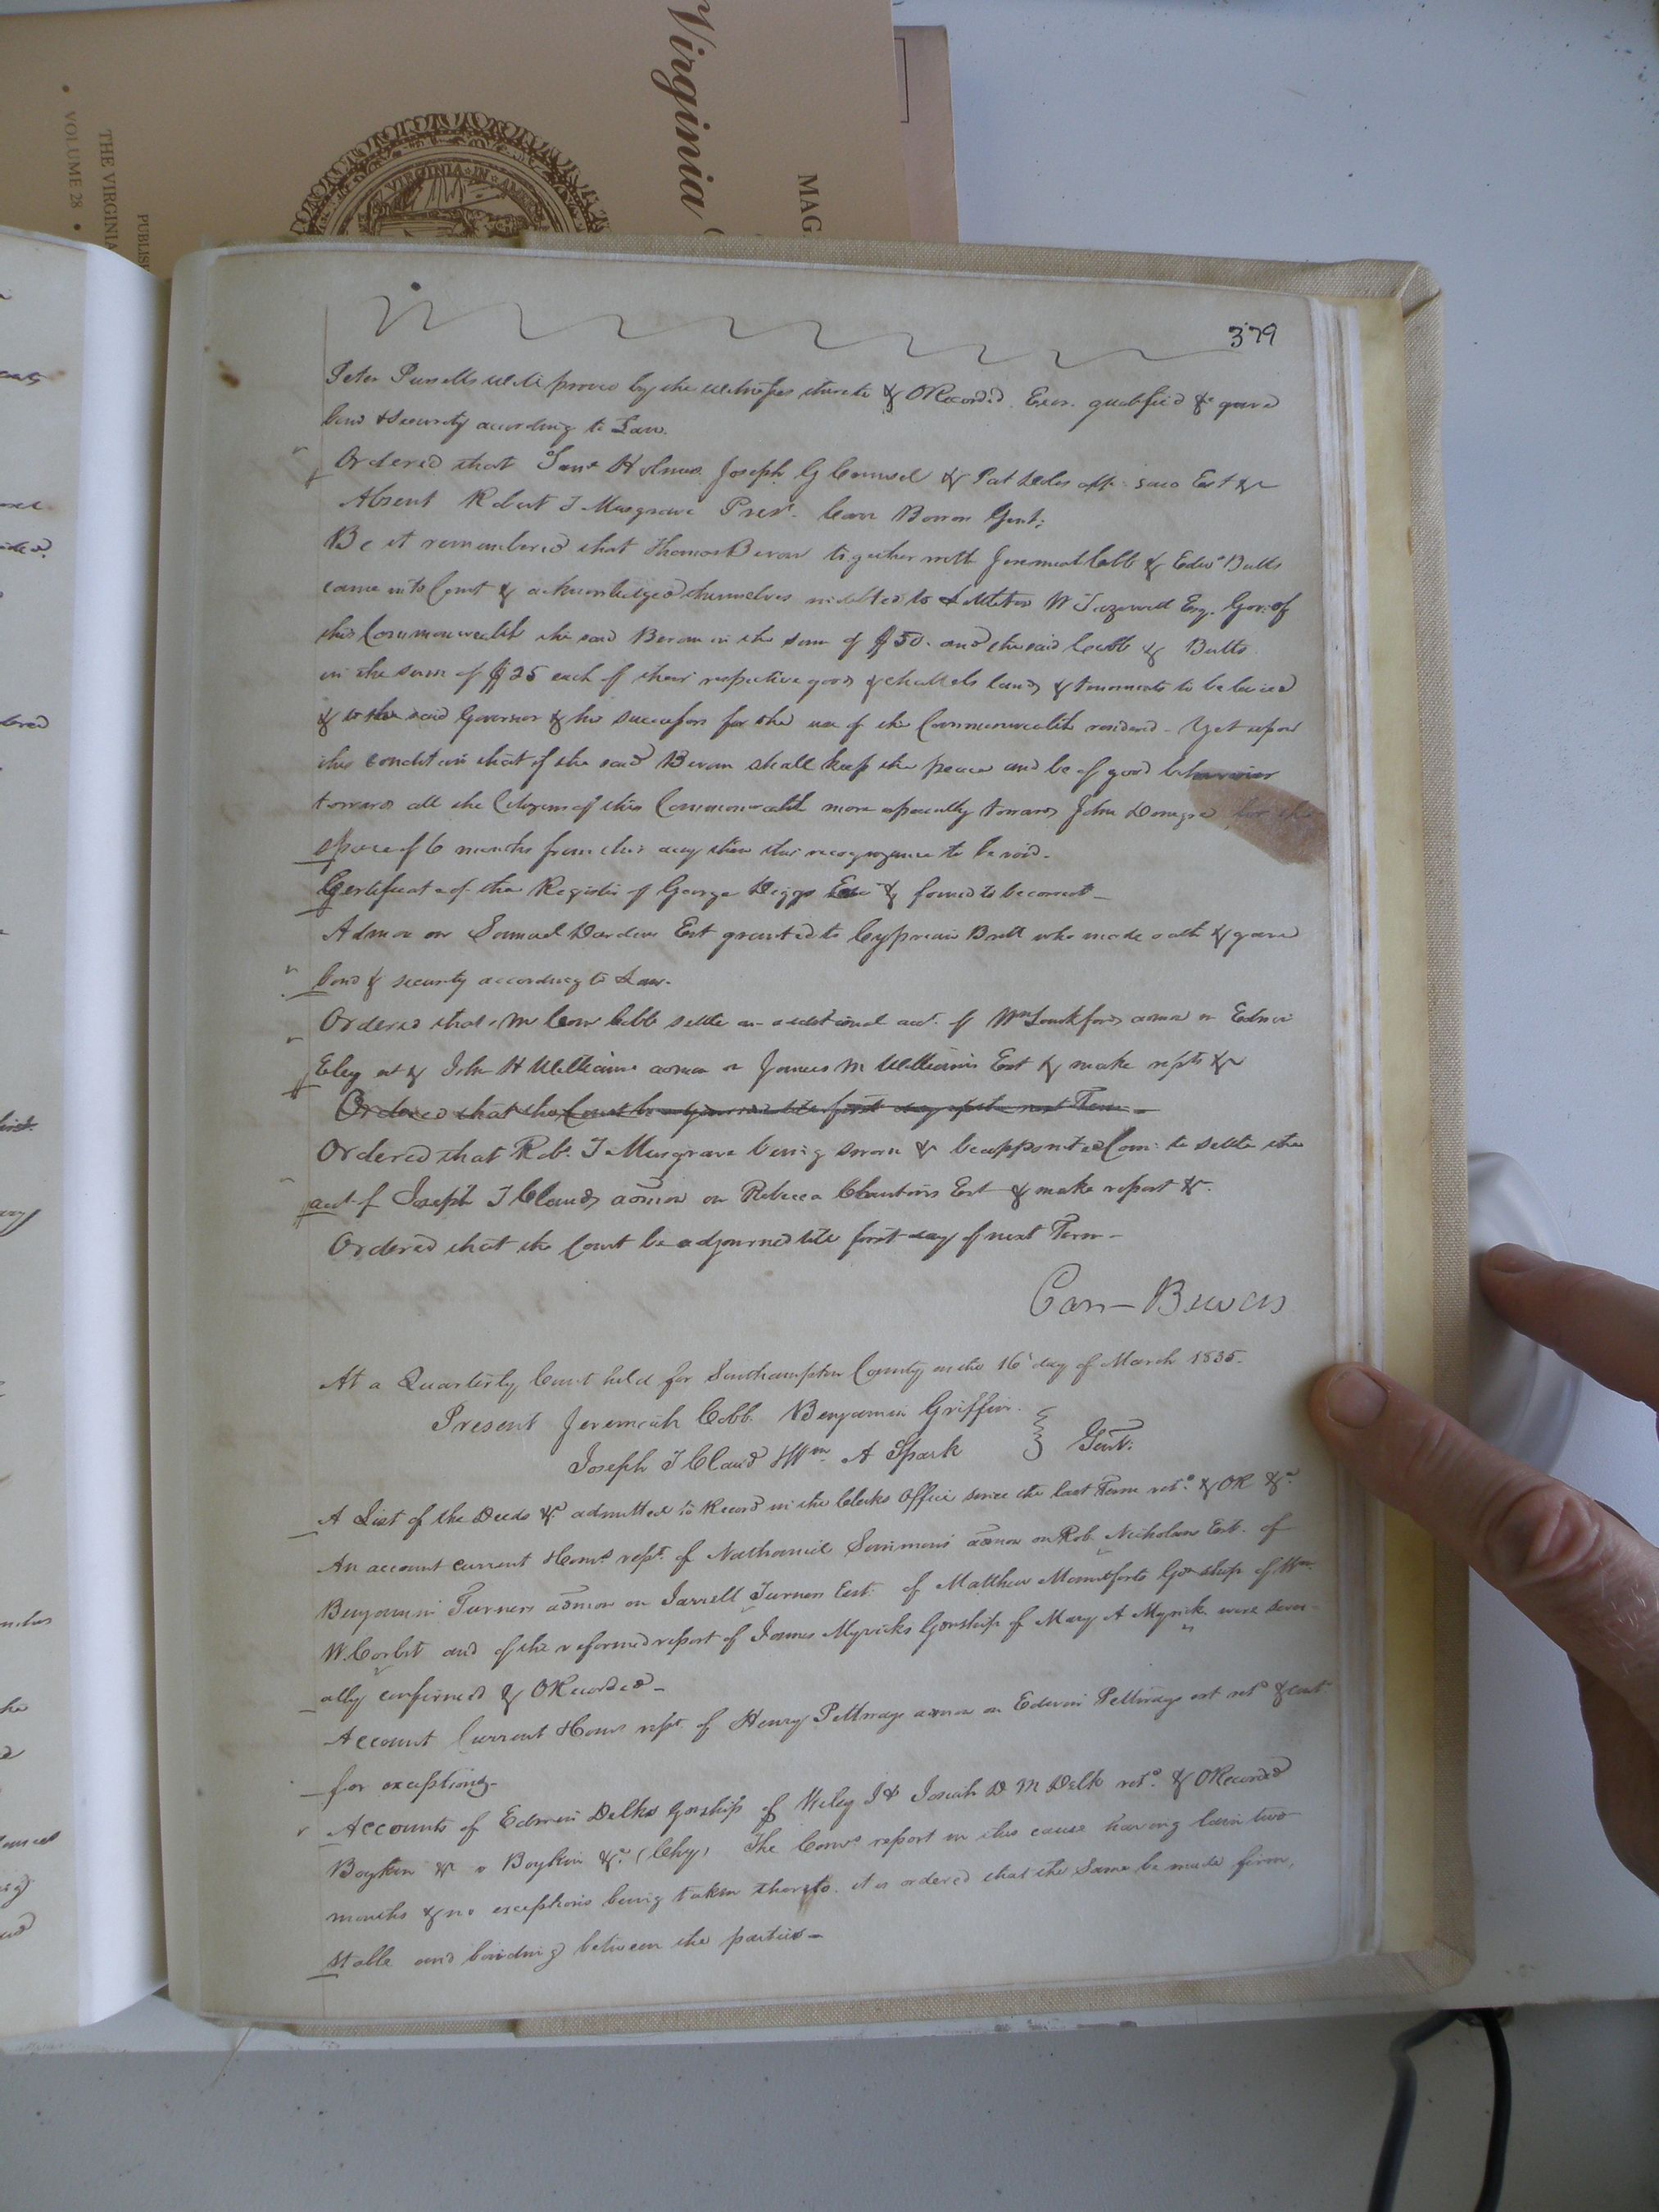 Virginia
MAG
THE VIRGINIA
VOLUME 28
PUBLISH
VIRGINIA IN AM
379
Peter Pursells will proved by the witnesses thereto & ORecorded. Exor. qualified & gave
bond & security according to Law.
Ordered that Saml Holmes Joseph G Counsel & Pat Doles app. said Est &c
Absent Robert T Musgrave Prest. Carr Bowers Gent:
Be it remembered that Thomas Bevan together with Jeremiah Cobb & Edwd Butts
came into Court & acknowledged themselves indebted to Littleton W Tazewell Esq. Gov: of
this Commonwealth the said Bevan in the sum of $50. and the said Cobb & Butts
in the sum of $25 each of their respective goods & chattels lands & tenements to be levied
& to the said Governor & his successors for the use of the Commonwealth rendered - Yet upon
this condition that if the said Bevan shall keep the peace and be of good behaviour
towards all the Citizens of this Commonwealth more especially towards John for the
space of 6 months from this day then this recognizance to be void.
Certificate of the Register of George Diggs & found to be correct -
Admon on Samuel Dardens Est granted to Cyprian Britt who made oath & gave
bond & security according to Law.
Ordered that Cobb settle an additional act. of Wm Lankfords admon on Edwin
Eley est & John H Williams admon on James M Williams Est & make repts &c
Ordered that the Court be adjourned till first day of the next Term -
Ordered that Robt. T Musgrave being sworn & be appointed Com: to settle the
act of Joseph T Clauds admon on Rebecca Clantons Est & make report &c.
Ordered that the Court be adjourned till first day of next Term -
Carr Bowers
At a Quarterly Court held for Southampton County on the 16 day of March 1835.
Present Jeremiah Cobb. Benjamin Griffin.
Joseph T Claud & Wm A Spark Gent:
A List of the Deeds &c. admitted to Record in the Clerks Office since the last Term retd. & OR &c.
An account current & Coms rept. of Nathaniel Simmons admon on Rob. Nicholson Est. of
Benjamin Turners admon on Jarrell Turners Est: of Matthew Mountforts Gdnship of Wm.
W. Corbit and of the reformed report of James Myricks Gdnship of Mary A Myrick were sever-
ally confirmed & ORecorded -
Account Current & Coms rept of Henry Pettways admon on Edwin Pettways est retd & contd
for exceptions -
Accounts of Edwin Delks Gdnship of Wiley J & Josiah D M Delk retd. & ORecorded
Boykin &c v Boykin &c. (Chy) The Coms report in this cause having lain two
months & no exceptions being taken thereto. it is ordered that the same be made firm,
stable and binding between the parties -